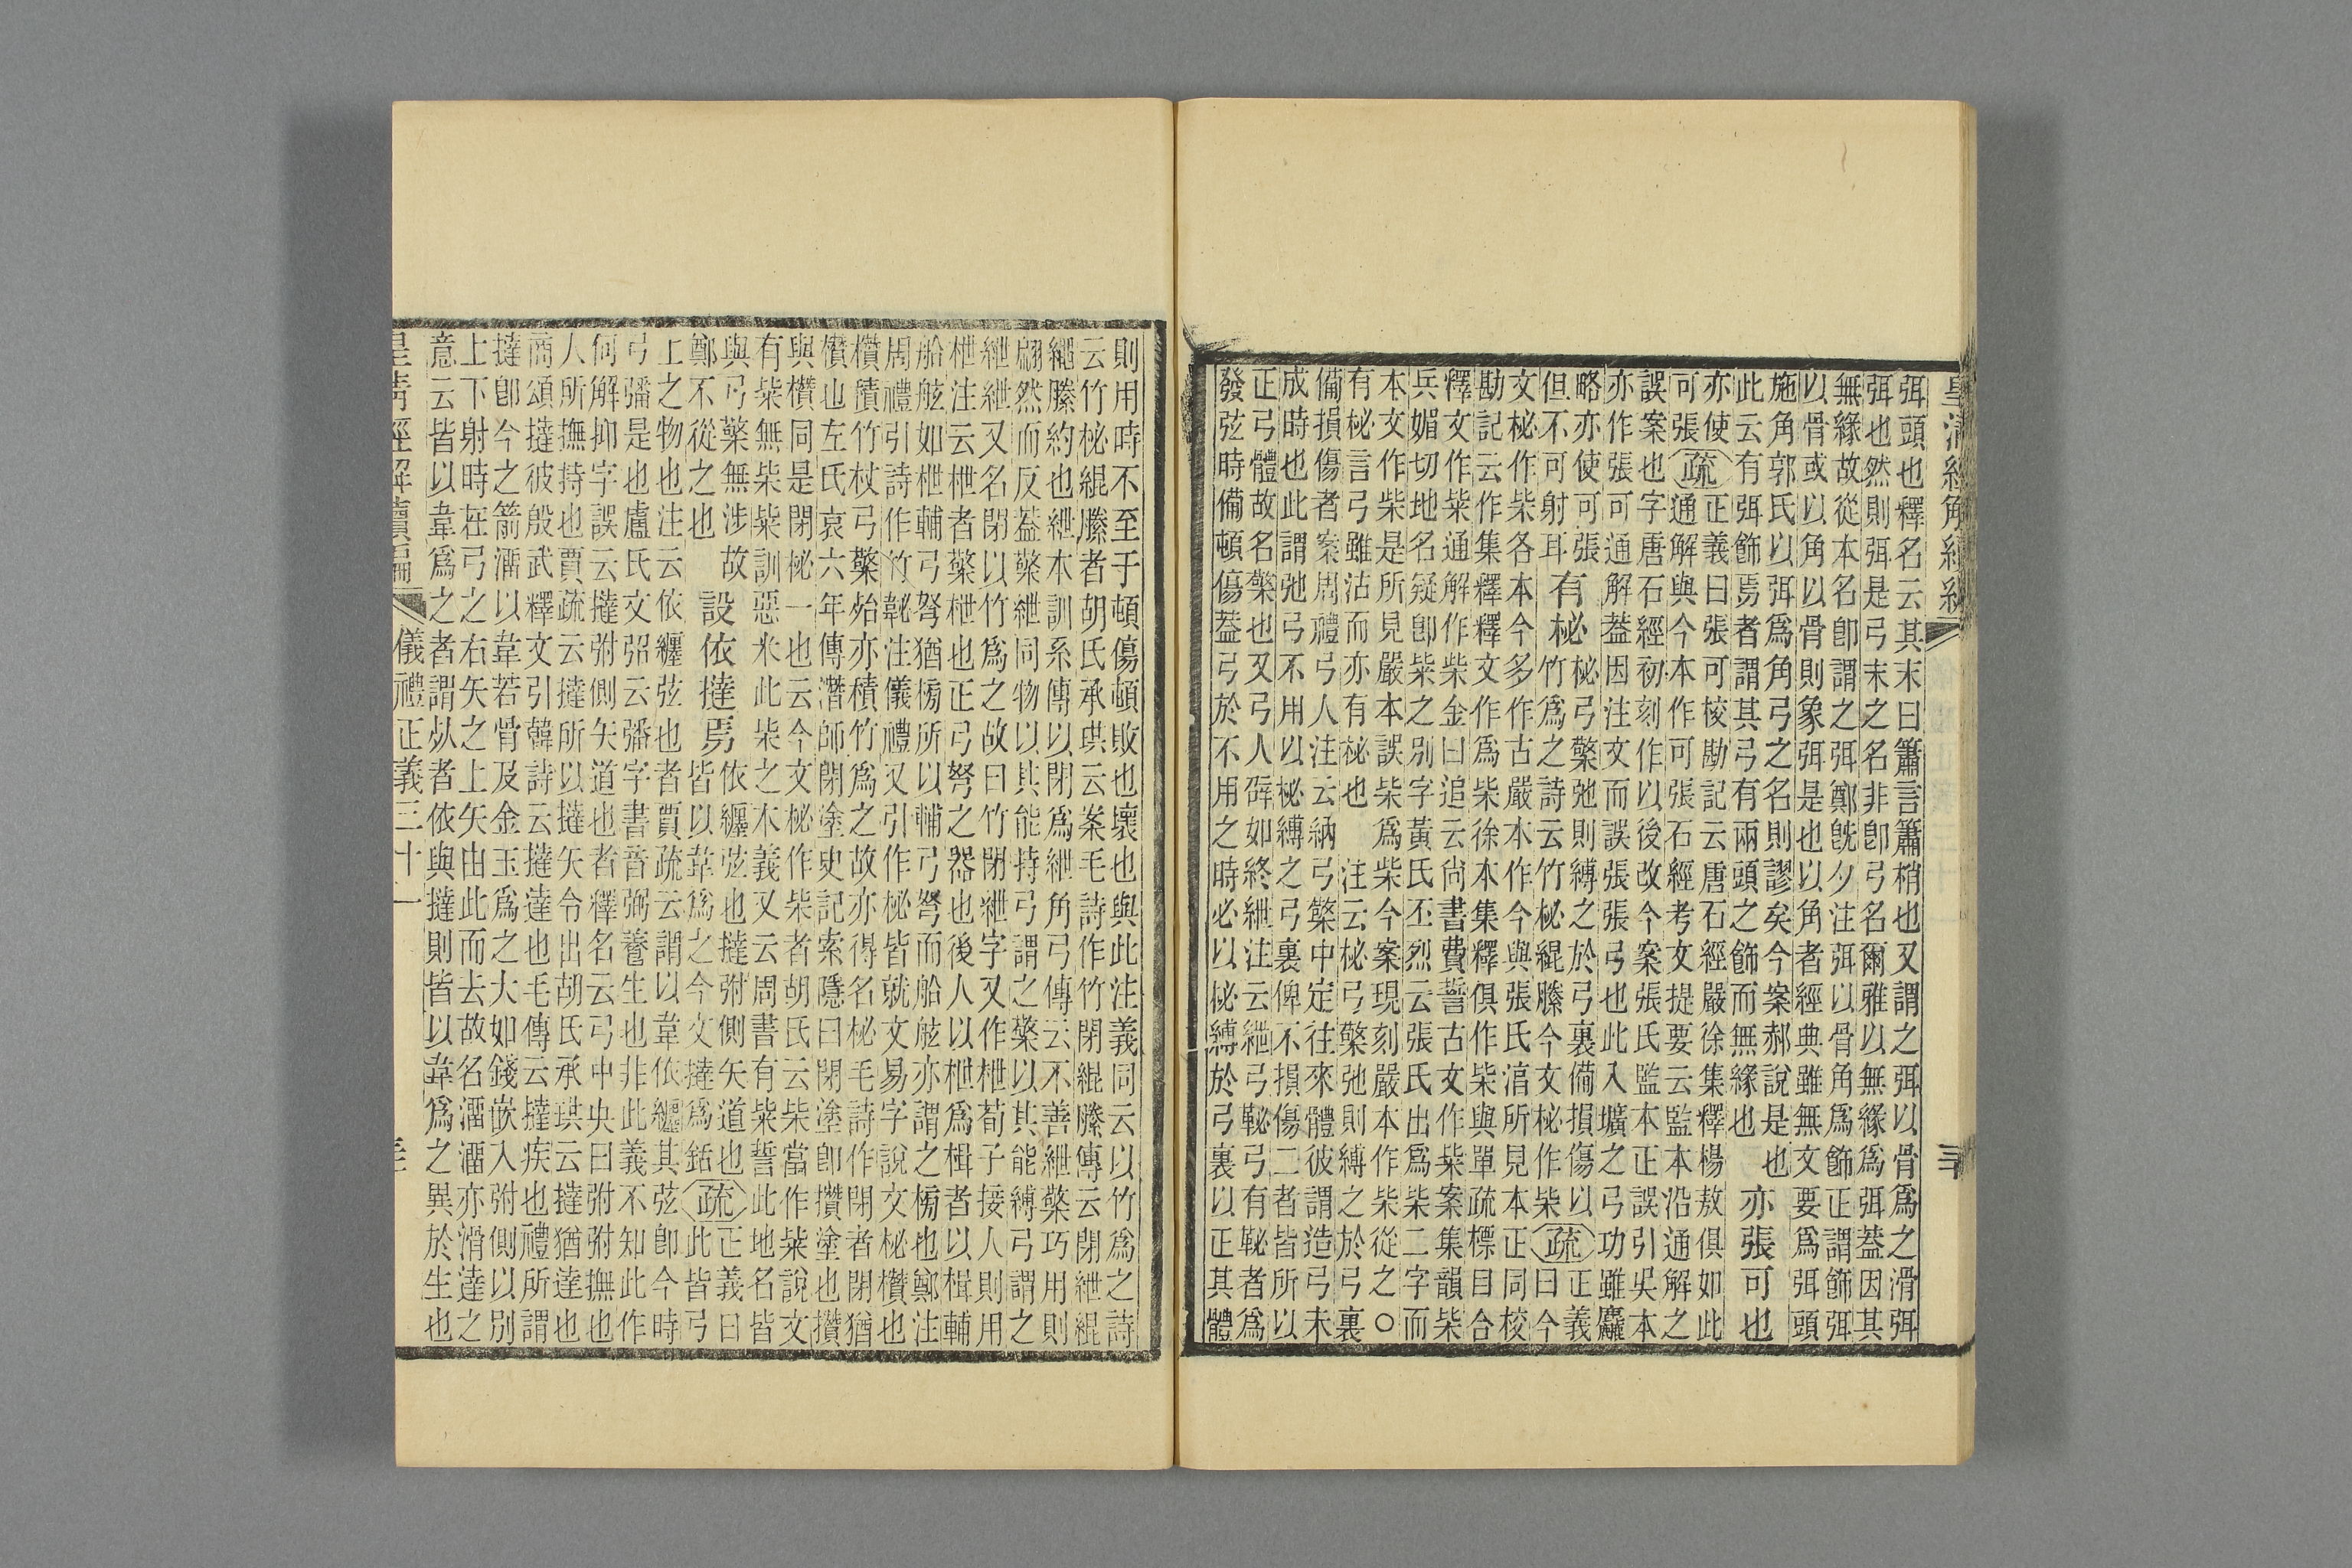 皇清經解續編
三十
弭頭也釋名云其末曰簫言簫梢也又謂之弭以骨為之滑弭
弭也然則弭是弓末之名非卽弓名爾雅以無緣為弭葢因其
無緣故從本名卽謂之弭鄭旣夕注弭以骨角為飾正謂飾弭
以骨或以角以骨則象弭是也以角者經典雖無文要為弭頭
施角郭氏以弭為角弓之名則謬矣今案郝說是也
此云有弭飾焉者謂其弓有兩頭之飾而無緣也
亦張可也
亦使
可張
疏
正義曰張可校勘記云唐石經嚴徐集釋楊敖俱如此
通解與今本作可張石經考文提要云監本沿通解之
誤案也字唐石經初刻作以後改今案張氏監本正誤引吳本
亦作張可通解葢因注文而誤張張弓也此入壙之弓功雖麤
略亦使可張
但不可射耳
有柲
柲弓檠弛則縛之於弓裏備損傷以
竹為之詩云竹柲緄縢今文柲作柴
疏
正義
曰今
文柲作柴各本今多作古嚴本作今與張氏湻所見本正同校
勘記云作集釋釋文作為柴徐本集釋俱作柴與單疏標目合
釋文作枈通解作柴金曰追云尚書費誓古文作枈案集韻柴
兵媚切地名疑卽枈之別字黃氏丕烈云張氏出為柴二字而
本文作柴是所見嚴本誤柴為柴今案現刻嚴本作柴從之○
有柲言弓雖沽而亦有柲也　注云柲弓檠弛則縛之於弓裏
備損傷者案周禮弓人注云納弓檠中定往來體彼謂造弓未
成時也此謂弛弓不用以柲縛之弓裏俾不損傷二者皆所以
正弓體故名檠也又弓人辟如終紲注云紲弓䪐弓有䪐者為
發弦時備頓傷葢弓於不用之時必以柲縛於弓裏以正其體
則用時不至于頓傷頓敗也壞也與此注義同云以竹為之詩
云竹柲緄縢者胡氏承珙云案毛詩作竹閉緄縢傳云閉紲緄
繩縢約也紲本訓系傳以閉為紲角弓傳云不善紲檠巧用則
翩然而反葢檠紲同物以其能持弓謂之檠以其能縛弓謂之
紲紲又名閉以竹為之故曰竹閉紲字又作枻荀子接人則用
枻注云枻者檠枻也正弓弩之器也後人以枻為楫者以楫輔
船舷如枻輔弓弩猶榜所以輔弓弩而船舷亦謂之榜也鄭注
周禮引詩作竹䪐注儀禮又引作柲皆就文易字說文柲欑也
欑積竹杖弓檠始亦積竹為之故亦得名柲毛詩作閉者閉猶
欑也左氏哀六年傳潛師閉塗史記索隱曰閉塗卽攢塗也攢
與欑同是閉柲一也云今文柲作柴者胡氏云柴當作枈說文
有枈無柴枈訓惡米此柴之木義又云周書有枈誓此地名皆
與弓檠無涉故
鄭不從之也
設依撻焉
依纏弦也撻弣側矢道也
皆以韋為之今文撻為銛
疏
正義曰
此皆弓
上之物也注云依纏弦也者賈疏云謂以韋依纏其弦卽今時
弓彇是也盧氏文弨云彇字書音弼蕃生也非此義不知此作
何解抑字誤云撻弣側矢道也者釋名云弓中央曰弣弣撫也
人所撫持也賈疏云撻所以撻矢令出胡氏承珙云撻猶達也
商頌撻彼殷武釋文引韓詩云撻達也毛傳云撻疾也禮所謂
撻卽今之箭溜以韋若骨及金玉為之大如錢嵌入弣側以別
上下射時在弓之右矢之上矢由此而去故名溜溜亦滑達之
意云皆以韋為之者謂者依與撻則皆以韋為之異於生也
皇清經解續編
儀禮正義三十一